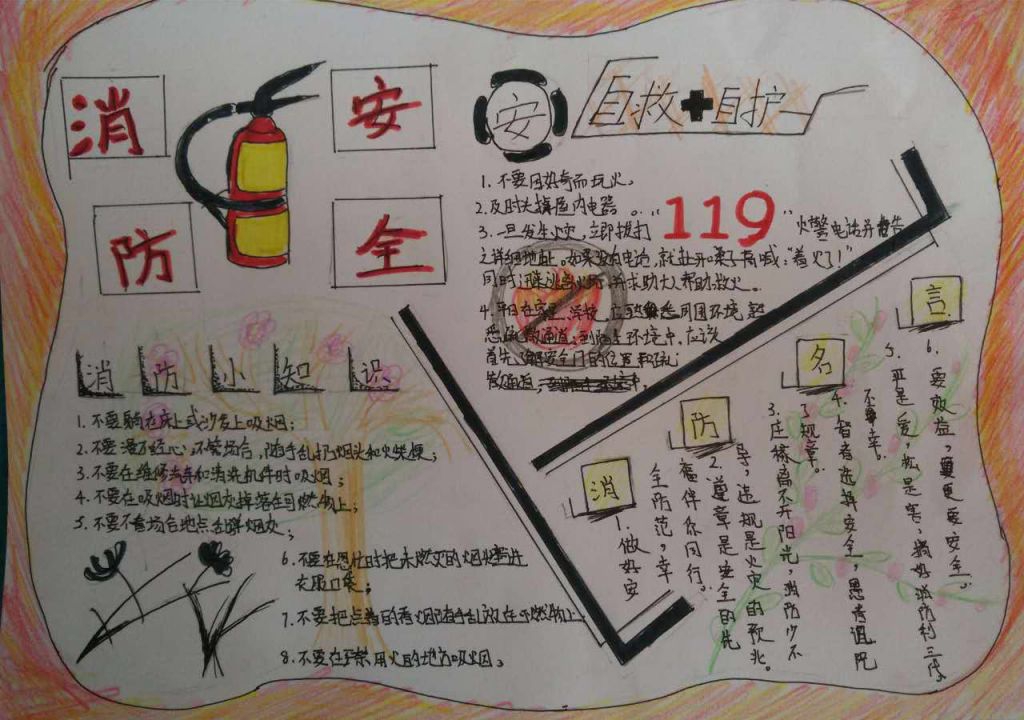 消 安
防 全
安
自救+自护
1. 不要因好奇而玩火。
2. 及时关掉屋内电器。
3. 一旦发生火灾,立即拨打“119”火警电话并报告
之详细地址。如果没有电话,就
喊:“着火了!”
同时 求助大人帮助救火。
4. 平日在家里、学校 周围环境
悉 通道;到陌生环境中,应该
首先了解安全门的位置和疏
散通道,
消防小知识
1. 不要躺在床上或沙发上吸烟;
2. 不要漫不经心,不管场合,随手乱扔烟头和火柴梗;
3. 不要在维修汽车和清洗机件时吸烟;
4. 不要在吸烟时让烟灰掉落在可燃物上;
5. 不要不看场合地点乱弹烟灰;
6. 不要在急忙时把未熄灭的烟头塞进
衣服口袋;
7. 不要把点着的香烟随手乱放在可燃物上。
8. 不要在严禁用火的地方吸烟。
消防名言
1. 做好安
全防范,幸
福伴你同行。
2. 遵章是安全的先
兆,违规是火灾的
3. 庄稼离不开阳光,消防少不
了规章。
4. 智者选择安全,愚者
不幸。
5. 功是爱,松是害,搞好消防利三代。
6. 要效益,更要安全。